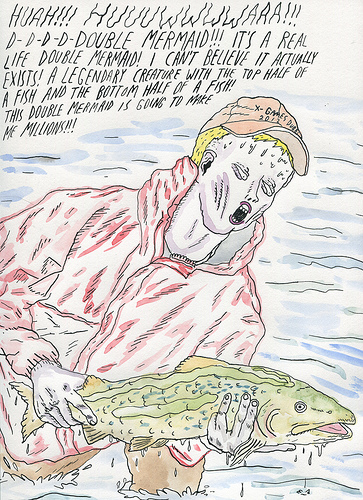 HUAH!!! HUUUWWUWARA!!!
D-D-D-D-DOUBLE MERMAID!!! IT'S A REAL
LIFE DOUBLE MERMAID! I CAN'T BELIEVE IT ACTUALLY
EXISTS! A LEGENDARY CREATURE WITH THE TOP HALF OF
A FISH AND THE BOTTOM HALF OF A FISH!
THIS DOUBLE MERMAID IS GOING TO MAKE
ME MILLIONS!!!
X-GAMES